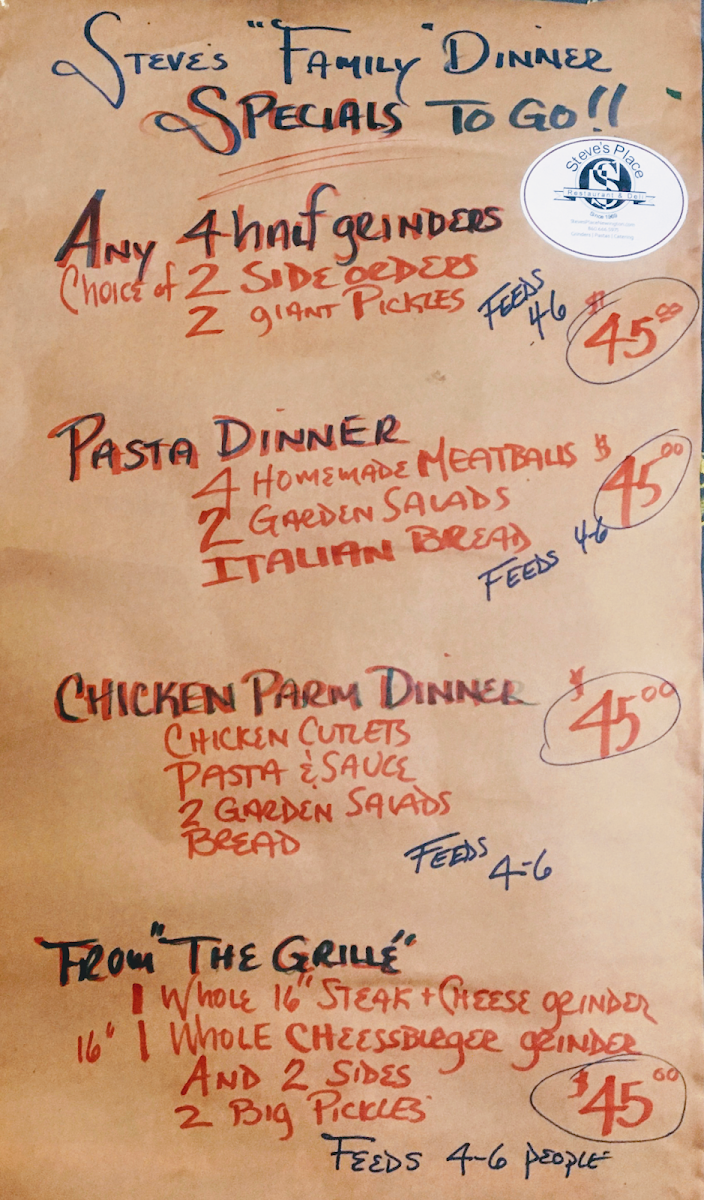 STEVE'S "FAMILY" DINNER
SPECIALS TO GO!!
Steve's Place
Restaurant & Deli
SINCE 1969
ANY 4 half grinders
Choice of 2 SIDE ORDERS
2 giant Pickles
FEEDS
4-6
$45.00
PASTA DINNER
4 HOMEMADE MEATBALLS
$45.00
2 GARDEN SALADS
ITALIAN BREAD
FEEDS 4-6
CHICKEN PARM DINNER
$45.00
CHICKEN CUTLETS
PASTA & SAUCE
2 GARDEN SALADS
BREAD
FEEDS
4-6
FROM "THE GRILLE"
1 WHOLE 16" STEAK + CHEESE grinder
16" 1 WHOLE CHEESSBURGER grinder
AND 2 SIDES
2 Big Pickles
$45.00
FEEDS 4-6 PEOPLE